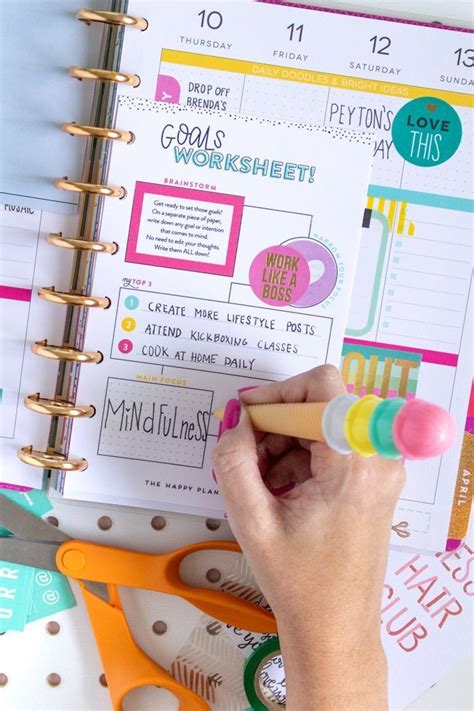 10
THURSDAY
11
FRIDAY
12
SATURDAY
13
SUNDAY
DAILY DOODLES & BRIGHT IDEAS
DROP OFF
BRENDA'S
PEYTON'S
LOVE
THIS
GOALS
WORKSHEET!
BRAINSTORM
Get ready to set those goals!
On a separate piece of paper,
write down any goal or intention
that comes to mind.
No need to edit your thoughts.
Write them ALL down!
NARROW YOUR FOCUS
WORK
LIKE A
BOSS
MOSAIC
my TOP 3
1 CREATE MORE LIFESTYLE POSTS
2 ATTEND KICKBOXING CLASSES
3 COOK AT HOME DAILY
MAIN FOCUS
MiNdfuLNess
THE HAPPY PLAN
OUT
APRIL
HAIR
CLUB